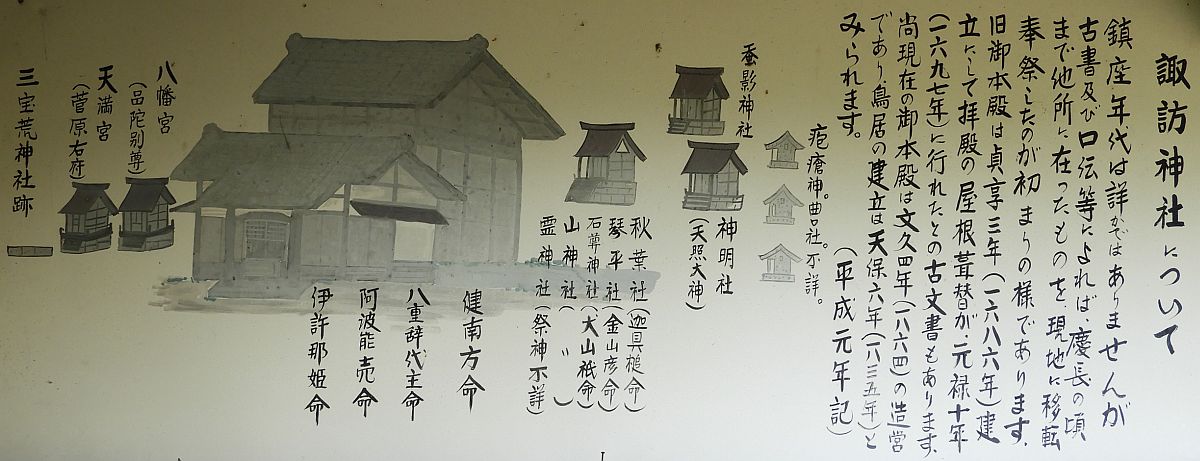 諏訪神社について
鎮座年代は詳かではありませんが
古書及び口伝等によれば、慶長の頃
まで他所に在ったものを現地に移転
奉祭したのが初まりの様であります。
旧御本殿は貞享三年(一六八六年)建
立にして拝殿の屋根葺替が、元禄十年
(一六九七年)に行れたとの古文書もあります。
尚現在の御本殿は文久四年(一八六四)の造営
であり、鳥居の建立は天保六年(一八三五年)と
みられます。
(平成元年記)
疱瘡神。曲口社。不詳。
蚕影神社
神明社
(天照大神)
秋葉社(迦具槌命)
琴平社(金山彦命)
石尊神社(大山祇命)
山神社(〃)
霊神社(祭神不詳)
健南方命
八重辞代主命
阿波能売命
伊許那姫命
八幡宮
(品陀別尊)
天満宮
(菅原右府)
三宝荒神社跡